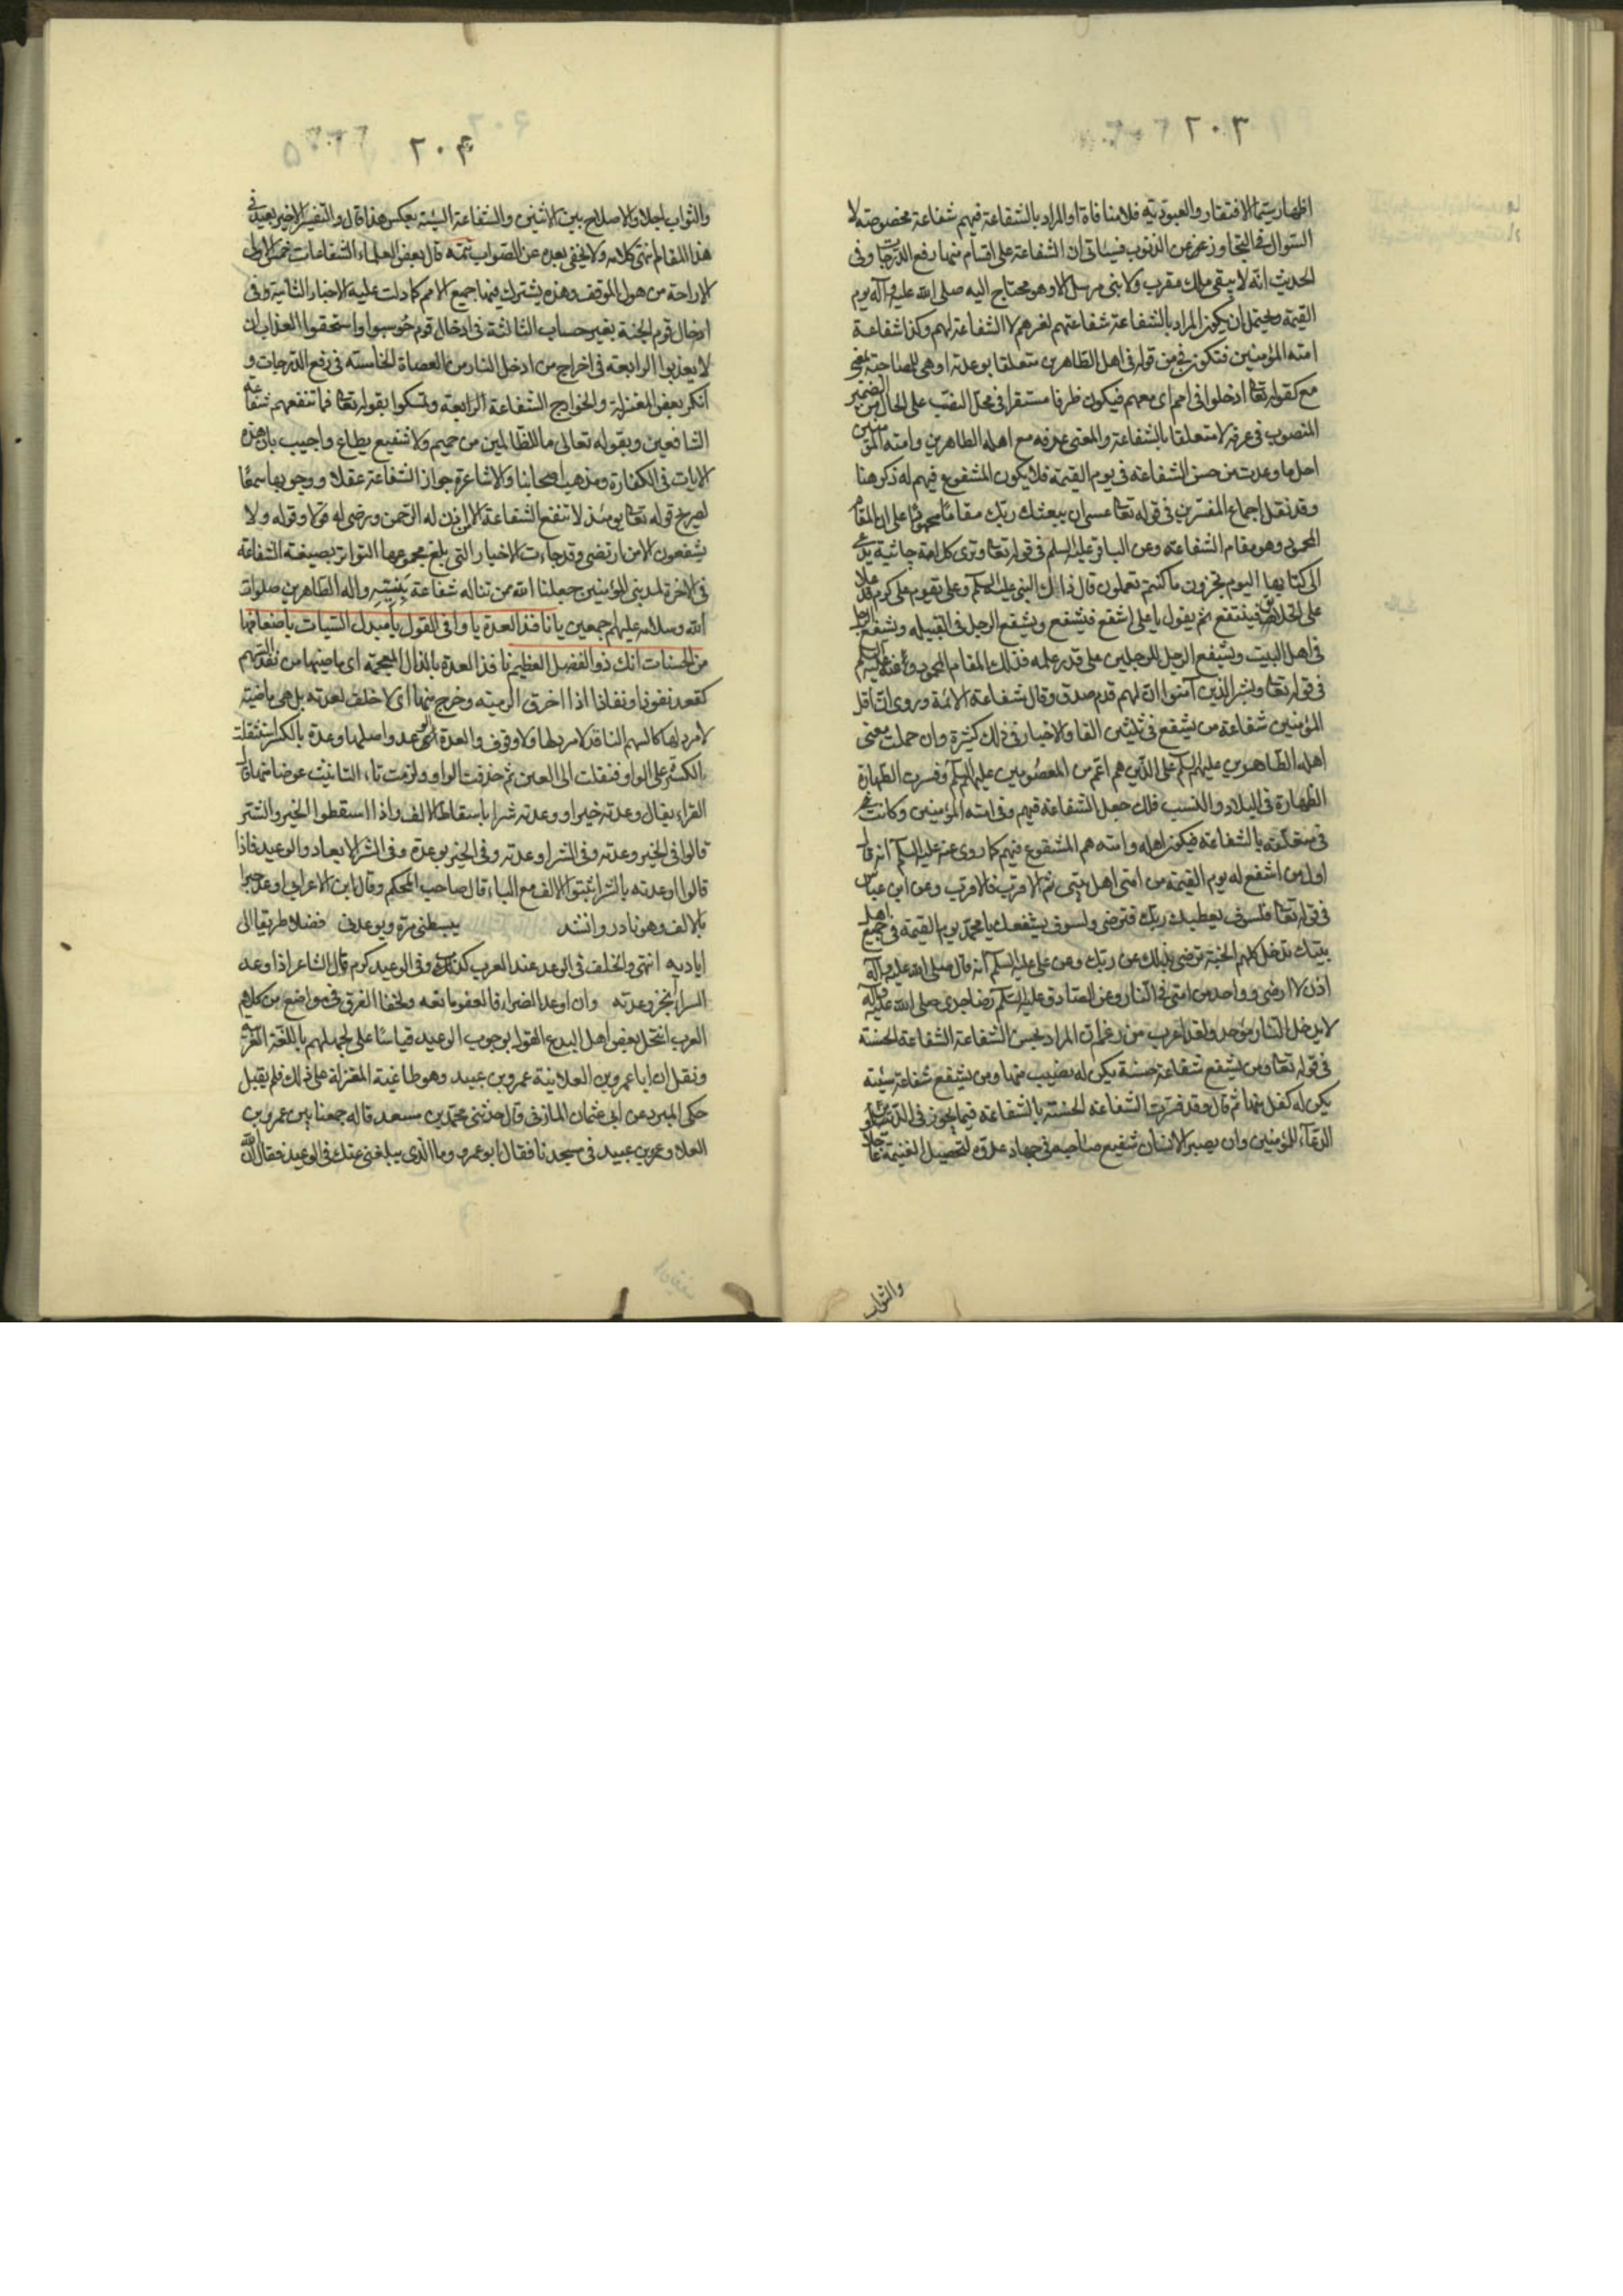 ٢٠٣
اظهار سيما الافتقار والعبودية فلا منافاة او المراد بالشفاعة فيهم شفاعة مخصوصة لا
السؤال في التجاوز عن الذنوب فسياتي ان الشفاعة على اقسام منها رفع الدرجات وفي
الحديث انه لا يبقى ملك مقرب ولا نبي مرسل الا وهو محتاج اليه صلى الله عليه وآله يوم
القيمة ويحتمل ان يكون المراد بالشفاعة شفاعتهم لغيرهم لا الشفاعة لهم وكذا شفاعة
امته المؤمنين فتكون في من قوله في اهله الطاهرين متعلقا بوعدته او هي للمصاحبة بمعنى
مع كقوله تعا ادخلوا في امم اى معهم فيكون ظرفا مستقرا في محل النصب على الحال من الضمير
المنصوب في عرفه لا متعلقا بالشفاعة والمعنى عرفه مع اهله الطاهرين وامته المؤمنين
اجل ما وعدت من حسن الشفاعة في يوم القيمة فلا يكون المشفوع فيهم له ذكر هنا
وقد نقل اجماع المفسرين في قوله تعا عسى ان يبعثك ربك مقاما محمودا على ان المقام
المحمود هو مقام الشفاعة وعن الباقر عليه السلم في قوله تعا وترى كل امة جاثية تدعى
الى كتابها اليوم تجزون ما كنتم تعملون قال ذاك النبي عليه السلم وعلى يقوم على كرم قد علا
على الخلائق فيشفع ثم يقول يا على اشفع فيشفع ويشفع الرجل في القبيله ويشفع الرجل
في اهل البيت ويشفع الرجل للرجلين على قدر عمله فذلك المقام المحمود وعنه عليه السلم
في قوله تعا وبشر الذين آمنوا ان لهم قدم صدق وقال شفاعة الائمة وروى ان اقل
المؤمنين شفاعة من يشفع في ثلثين الفا والاخبار في ذلك كثيرة وان حملت معنى
اهله الطاهرين عليهم السلم على الذين هم اعم من المعصومين عليهم السلم وفسرت الطهارة
الطهارة في الميلاد والنسب فلك جعل الشفاعة فيهم وفي امته المؤمنين وكانت في
في متعلقه بالشفاعة فيكون اهله وامته هم المشفوع فيهم كما روى عنه عليه السلم انه قال
اول من اشفع له يوم القيمة من امتى اهل بيتى ثم الاقرب فالاقرب وعن ابن عباس
في قوله تعا ولسوف يعطيك ربك فترضى ولسوف يشفعك يا محمد يوم القيمة في جميع اهل
بيتك تدخل كلهم الجنة ترضى بذلك من ربك وعن على عليه السلم انه قال صلى الله عليه وآله
اذن لا ارضى وواحد من امتى في النار وعن الصادق عليه السلم رضا جدى صلى الله عليه وآله
لا يدخل النار موحد ولقد اغرب من زعم ان المراد بحسن الشفاعة الشفاعة الحسنة
في قوله تعا من يشفع شفاعة حسنة يكن له نصيب منها ومن يشفع شفاعة سيئة
يكن له كفل منها ثم قال وقد فسرت الشفاعة الحسنة بالشفاعة فيما يجوز في الدين
الدعاء للمؤمنين وان يصير الانسان شفيع صاحبه في جهاد عدوه لتحصيل الغنيمة عاجلا
والثواب
٢٠٤
والثواب اجلا والاصلاح بين الاثنين والشفاعة السيئة بعكس هذا قال والتفسير الاخير بعيد في
هذا المقام انتهى كلامه ولا يخفى بعده عن الصواب تتمه قال بعض العلماء الشفاعات خمس الاولى
الاراحة من هول الموقف وهذه يشترك فيها جميع الامم كما دلت عليه الاخبار الثانية وفي
ادخال قوم الجنة بغير حساب الثالثة في ادخال قوم حوسبوا واستحقوا العذاب ان
لا يعذبوا الرابعة في اخراج من ادخل النار من العصاة الخامسة في رفع الدرجات و
انكر بعض المعتزلة والخوارج الشفاعة الرابعة وتمسكوا بقوله تعا فما تنفعهم شفاعة
الشافعين وبقوله تعالى ما للظالمين من حميم ولا شفيع يطاع واجيب بان هذه
الايات في الكفارة ومذهب اصحابنا والاشاعرة جواز الشفاعة عقلا ووجوبها سمعا
لصريح قوله تعا يومئذ لا تنفع الشفاعة الا من اذن له الرحمن ورضى له قولا وقوله ولا
يشفعون الا من ارتضى وقد جاءت الاخبار التي بلغ مجموعها التواتر بصيغة الشفاعة
في الاخرة لمذنبى المؤمنين جعلنا الله ممن تناله شفاعة نبيه واله الطاهرين صلوات
الله وسلامه عليهم اجمعين يا نافذ العدة يا وافى القول يا مبدل السيئات باضعافها
من الحسنات انك ذو الفضل العظيم نافذ العدة بالذال المعجمة اى ماضيها من نفذ السهم
كقعد نفوذا ونفاذا اذا اخرق الرمية وخرج منها اى لا خلف لعدته بل هى ماضية
لا مرد لها كالسهم النافذ لا مرد لها ولا وقوف والعدة الوعد واصلها وعدة بالكسر استثقلت
الكسرة على الواو فنقلت الى العين ثم حذفت الواو ولزمت تاء التانيث عوضا منها قال
الفراء يقال وعدته خيرا ووعدته شرا باسقاط الالف واذا اسقطوا الخير والشر
قالوا في الخير وعدته وفي الشر اوعدته وفي الخير بوعدة وفي الشر الايعاد والوعيد فاذا
قالوا اوعدته بالشر اثبتوا الالف مع الباء قال صاحب المحكم وقال ابن الاعرابى اوعدته خيرا
بالالف وهو نادر وانشد يبسطنى مرة ويوعدنى فضلا طريقا الى
اياديه انتهى والخلف في الوعد عند العرب كذلك وفي الوعيد كرم قال الشاعر اذا وعد
السراء انجز وعدته وان اوعد الضراء فالعفو مانعه ولخفاء الفرق في مواضع من كلام
العرب انتحل بعض اهل البدع القول بوجوب الوعيد قياسا على لجهلهم باللغة العربية
ونقل ان ابا عمرو بن العلا نبه عمرو بن عبيد وهو طاغية المعتزلة على ذلك فلم يقبل
حكى المبرد عن ابى عثمان المازنى قال حدثنى محمد بن مسعد قاله جمعنا بين عمرو بن
العلا وعمرو بن عبيد في مسجدنا فقال ابو عمرو وما الذى يبلغنى عنك في الوعيد فقال ان الله